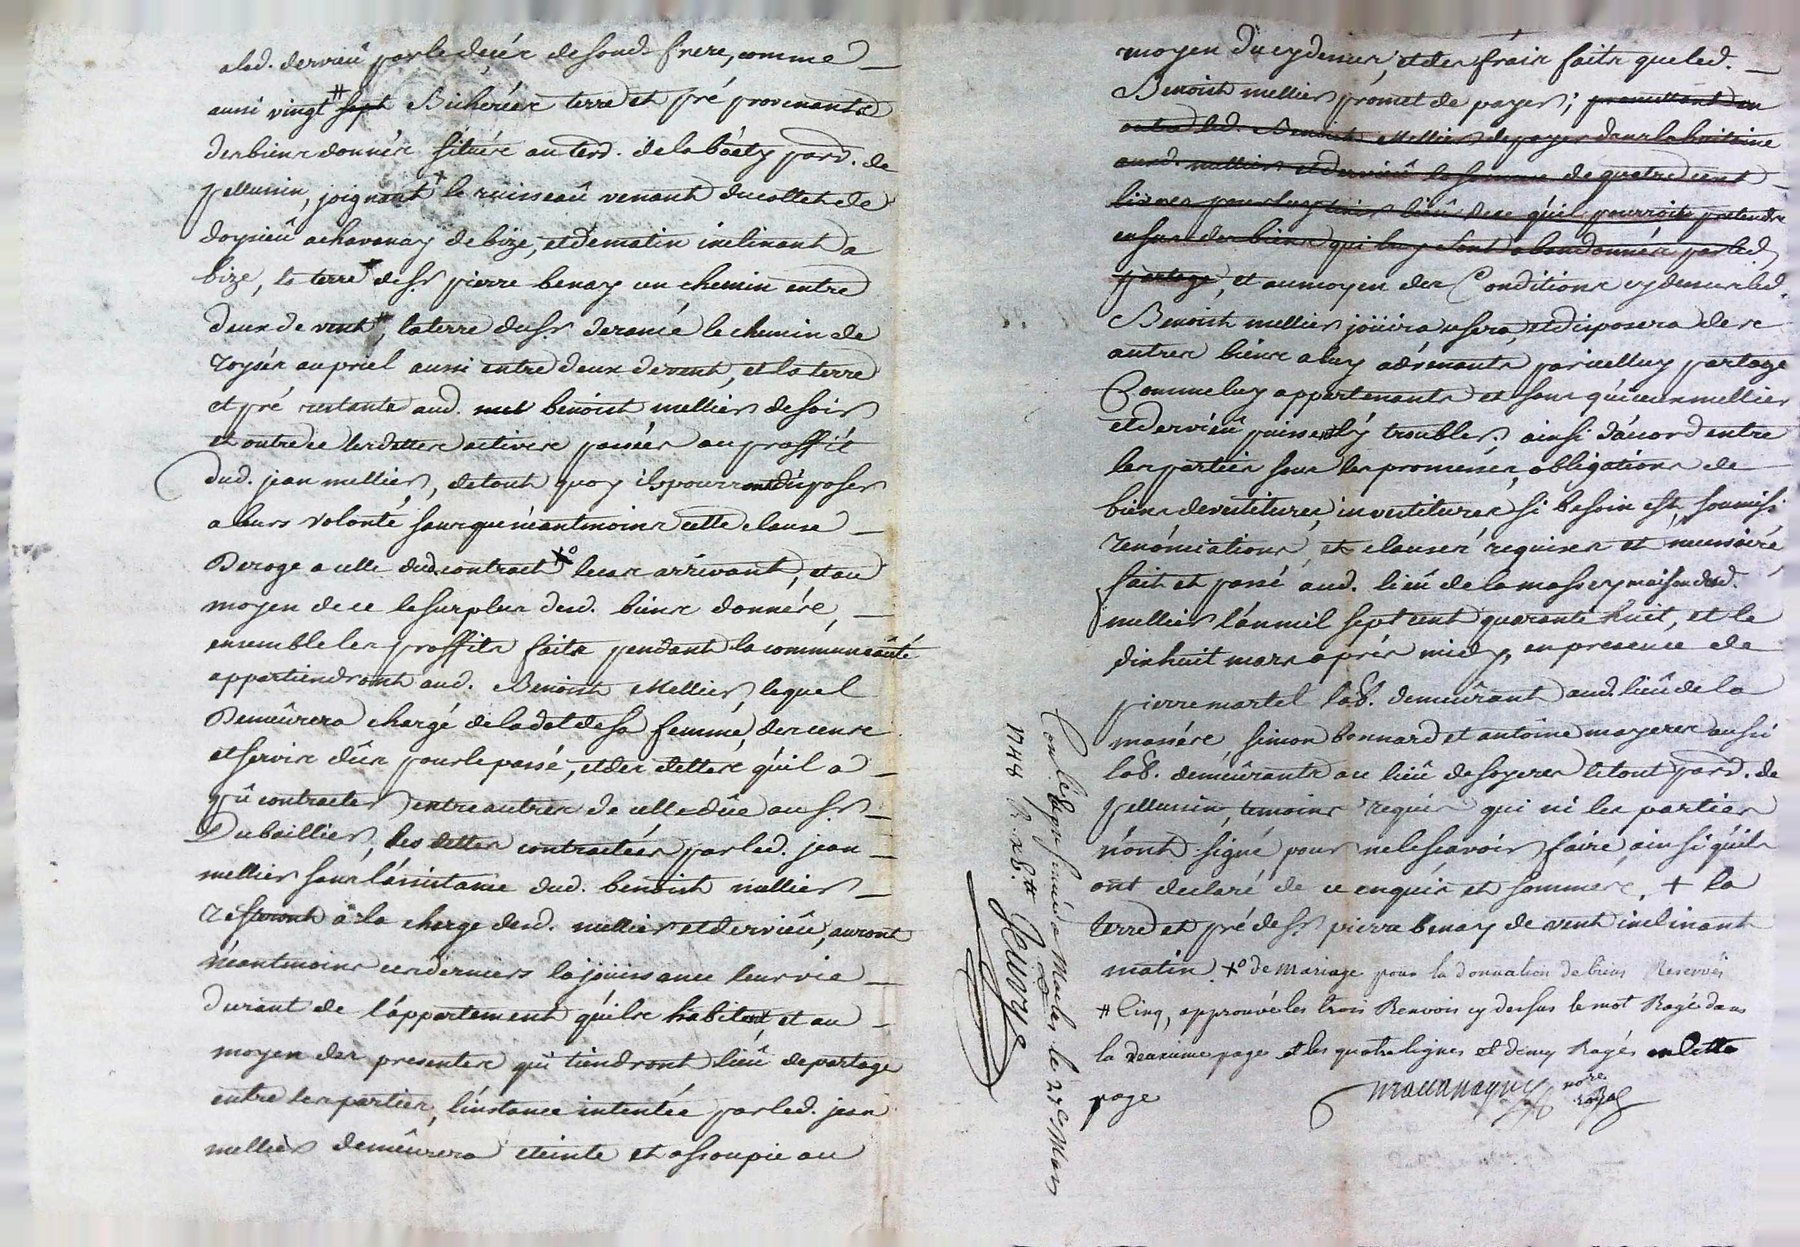 alad. dervieû par le decér de soud. frere, comme
aussi vingt # sept Bicheréer terre et pré provenants
des biens donnér situér au terd. de la bóety par d. de
pellussin, joignant le ruisseaû venant du collet de
doysieû a chavanay de bize, et de matin inclinant a
bize, la terre de sr pierre benay un chemin entre
deux de vent, la terre du sr. deramé le chemin de
royér au priel aussi entre deux de vent, et la terre
et pré restants aud. benoist mellier de soir
et outre ce les dettes activer passéer au proffit
dud. jean mellier, de tout quoy ils pourront disposer
a leurs volonté sans que néantmoins cette clause
Deroge a celle dud. contract +o le cas arrivant, et au
moyen de ce le surplus desd. biens donnér,
ensemble les proffits faits pendant la communeauté
appartiendront aud. Benoist Mellier, lequel
Demeûrera chargé de la dot de sa femme, des cens
et servis dûs pour le passé, et des dettes qu'il a
pû contracter entre autres de celle dûe au sr.
Dubaillier, les dettes contractéer par led. jean
mellier sans l'assistance dud. benoist mellier
resteront a la charge desd. mellier et dervieû, auront
néantmoins ces derniers la jouissance leur vie
durant de l'appartement qu'ils habitent, et au
moyen des presentes qui tiendront lieû de partage
entre les parties, l'instance intentée par led. jean
mellier demeûrera eteinte et assoupie au
moyen du cy dessus, et des frais faits que led.
Benoist mellier promet de payer; promettant en
outre led. Benoist Mellier de payer dans la huitaine
aud. mellier et dervieû la somme de quatre cent
livres pour luy tenir lieû de ce qu'il pourroit pretendre
en sus des biens qui luy sont abandonnér par led.
partage, et au moyen des Conditions cy dessus led.
Benoist mellier joûira usera, et disposera de ses
autres biens a luy advenants par icelluy partage
Comme luy appartenants et sans qu'iceux mellier
et dervieû puissent l'y troubler. ainsi d'acord entre
les parties sous les promesses, obligations de
biens devestitures, investitures si besoin est, soumiss.
renonciations, et clauses requises et necessaires
fait et passé aud. lieû de la massery maison dud.
mellier l'an mil sept cent quarante huit, et le
dix huit mars aprés midy, en presence de
pierre martel lab. demeûrant aud. lieû de la
masséré, simon bonnard et antoine mayerer aussi
lab. demeûrants au lieû de soyerer le tout par d. de
pellussin, temoins requis qui ni les parties
n'ont signé pour ne le scavoir faire, ainsi qu'ils
ont declaré de ce enquis et sommés, + la
terre et pré de sr. pierre benay de vent inclinant
matin +o de mariage pour la donnation de biens Reservés
# Cinq, approuvé les trois Renvois cy dessus le mot Rayé dans
la deuxieme page et les quatre lignes et demy Rayés en cette
page
nore. royal
Conllé. et insinué a Maclas le 27e Mars
1748